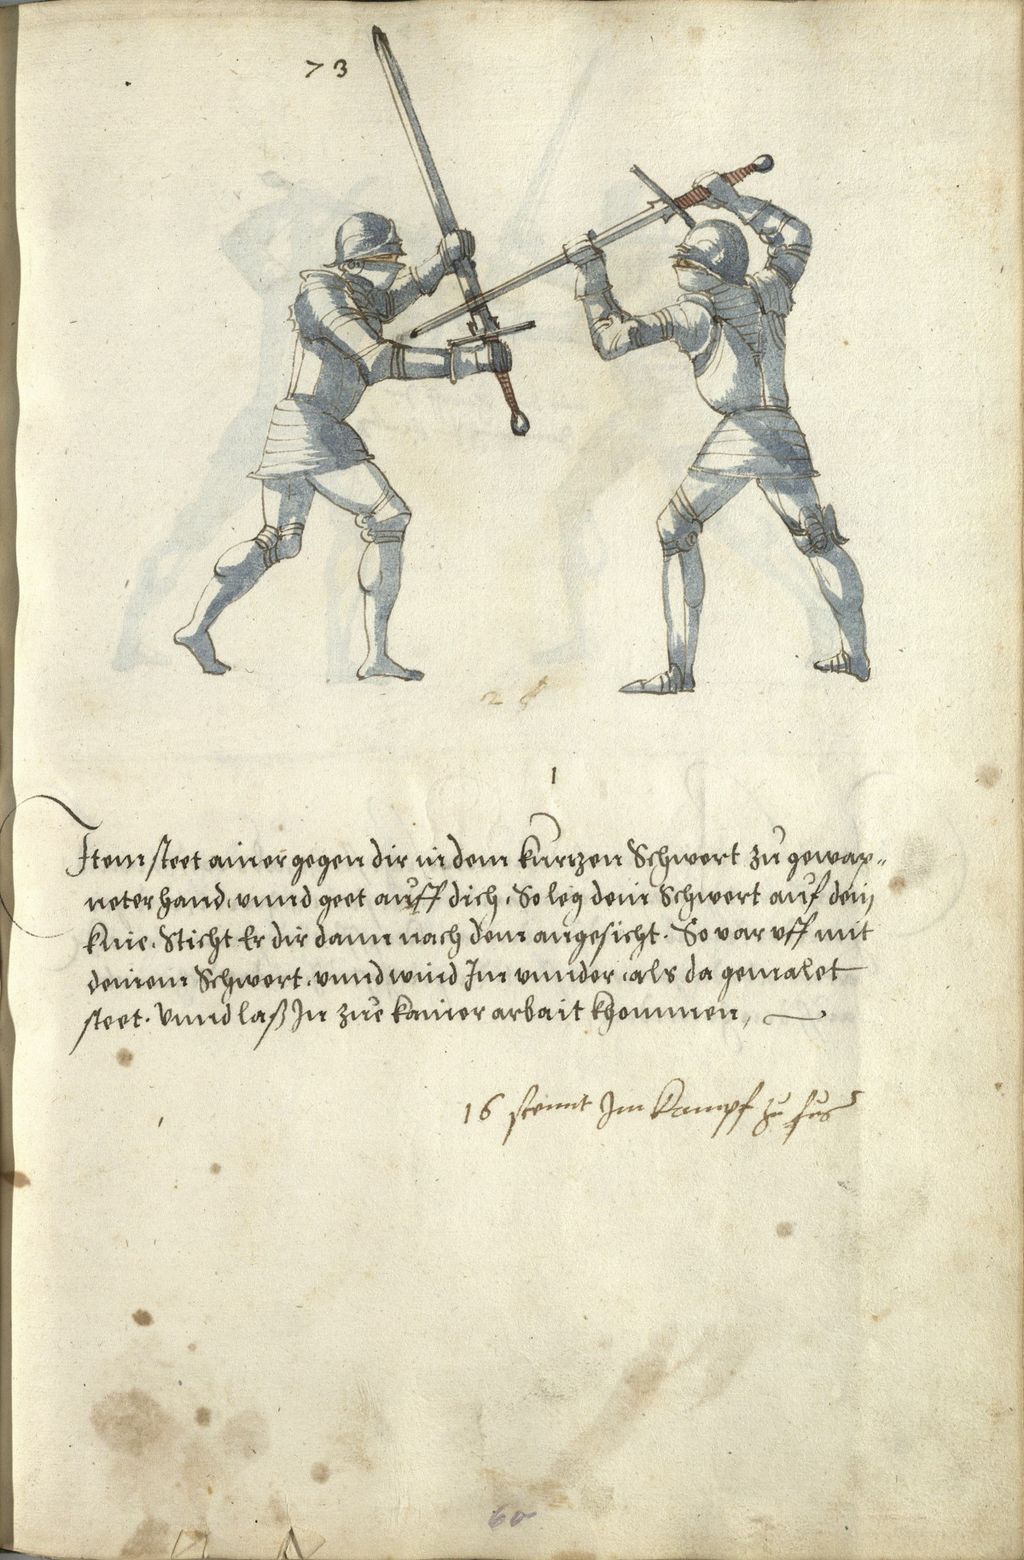 73
1
Item steet ainer gegen dir in dem kurtzen Schwert zu gewap-
neter hand, vnnd geet auff dich, So leg dein Schwert auf dein
knie. Sticht Er dir dann nach dem angesicht. So var vff mit
deinem Schwert, vnnd wind Im vnnder, als da gemalet
steet. Vnnd laß In zue kainer arbait khommen,
16 stennt Im Kampf zu fus
60